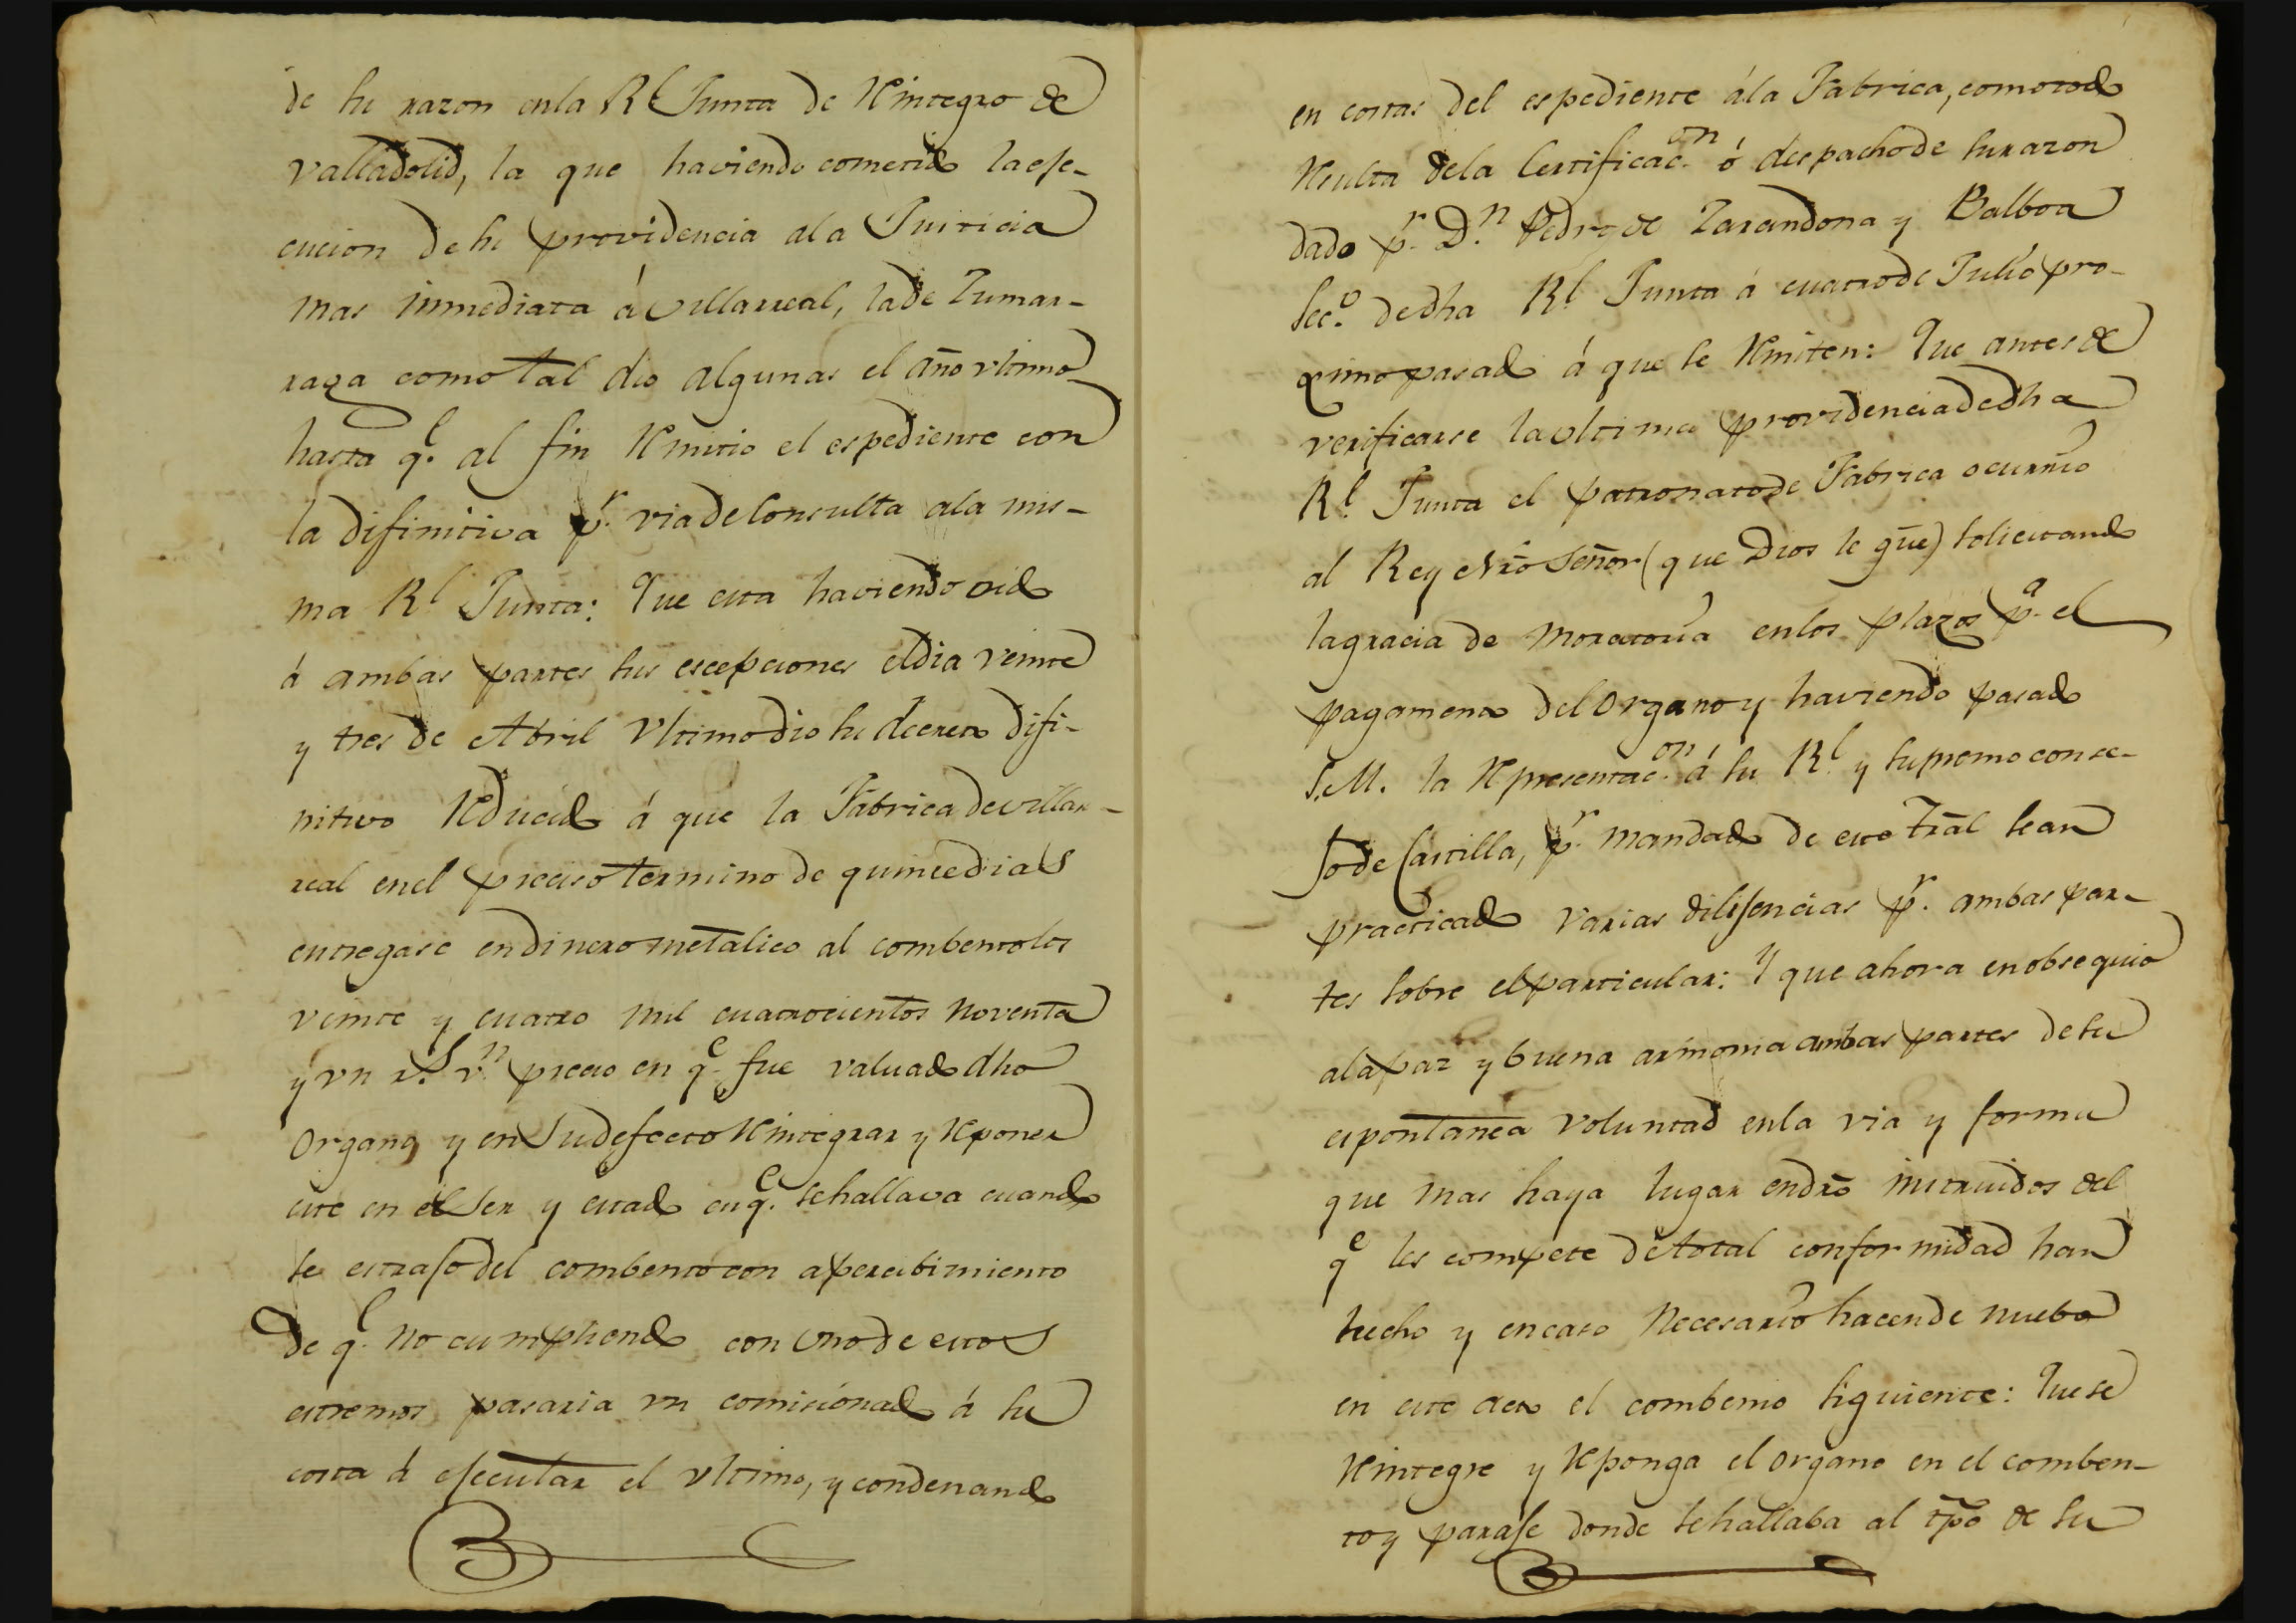 de su razon en la Rl Junta de Reintegro de
Valladolid, la que haviendo cometido la eje-
cucion de su providencia ala Justicia
mas inmediata á Villarreal, la de Zumar-
raga como tal dio algunas el año vltimo
hasta q.e al fin Remitio el espediente con
la difinitiva p.r via de Consulta ala mis-
ma R.l Junta: Que esta haviendo oido
á ambas partes sus escepciones el dia veinte
y tres de Abril Vltimo dio su decreto difi-
nitivo Reducido á que la Fabrica de Villar-
real en el preciso termino de quince dias
entregase en dinero metalico al combento los
veinte y cuatro mil cuatrocientos noventa
y vn r.s v.n precio en q.e fue valuado dho
Organo y en Su defecto Reintegrar y Reponer
este en el Ser y estado en q.e se hallava cuando
se estrajo del combento con apercibimiento
de q.e no cumpliendo con Uno de estos
estremos pasaria vn comisionado á su
costa á ejecutar el vltimo, y condenando
en costas del espediente ála Fabrica, como todo
Resulta dela Certificac.on ó despacho de su razon
dado p.r D.n Pedro de Zarandona y Balboa
Sec.o de dha R.l Junta á cuatro de Julio pro-
ximo pasado á que se Remiten: Que antes de
verificarse la Ultima providencia de dha
R.l Junta el patronato de Fabrica ocurrio
al Rey Nrõ Señor (que Dios le gũe) Solicitando
la gracia de moratoria en los plazos p.a el
pagamento del Organo y haviendo pasado
S.M. la Representac.on á su R.l y Supremo conse-
jo de Castilla, p.r mandado de este Trãl se an
practicado varias dilijencias p.r ambas par-
tes Sobre el particular: Y que ahora en obsequio
ala paz y buena armonia ambas partes de su
espontanea Voluntad en la via y forma
que mas haya lugar en drõ instruidos del
q.e les compete de total conformidad han
hecho y en caso Necesario hacen de nuebo
en este acto el combenio Siguiente: Que se
Reintegre y Reponga el Organo en el comben-
to y paraje donde se hallaba al tpõ de su